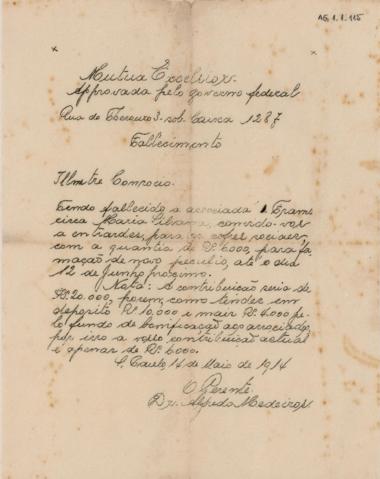 AG.1.1.115
Mutua Excelsior.
Approvada pelo governo federal
Rua do Thesouro 3-sob. Caixa 1287
Fallecimento
Illustre Consocio.
Tendo fallecido a associada Fran-
cisca Maria Silvana, convido-vos
a entrardes, para os cofres sociaes,
com a quantia de Rs. 6.000, para for
mação de novo peculio, até o dia
12 de Junho proximo.
Nota: A contribuição seria de
Rs. 20.000, porem, como tendes em
deposito Rs. 10.000 e mais Rs. 4.000 pe-
lo fundo de bonificação aos associados,
por isso a vossa contribuição actual
é apenas de Rs. 6.000.
S. Paulo, 14 de Maio de 1914
O Gerente
Dr. Alfredo Medeiros.